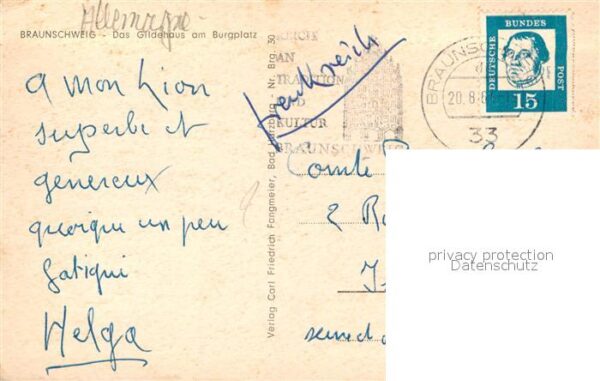 Allemagne
BRAUNSCHWEIG - Das Gildehaus am Burgplatz
A mon Lion
superbe et
genereux
quoique un peu
fatigué
Helga
Verlag Carl Friedrich Fangmeier, Bad Harzburg - Nr. Brg. 30
REICH
AN
TRADITION
UND
KULTUR
BRAUNSCHWEIG
Frankreich
DEUTSCHE
BUNDES
POST
15
BRAUNSCH
20.8.6
33
Comte
2 R
privacy protection
Datenschutz